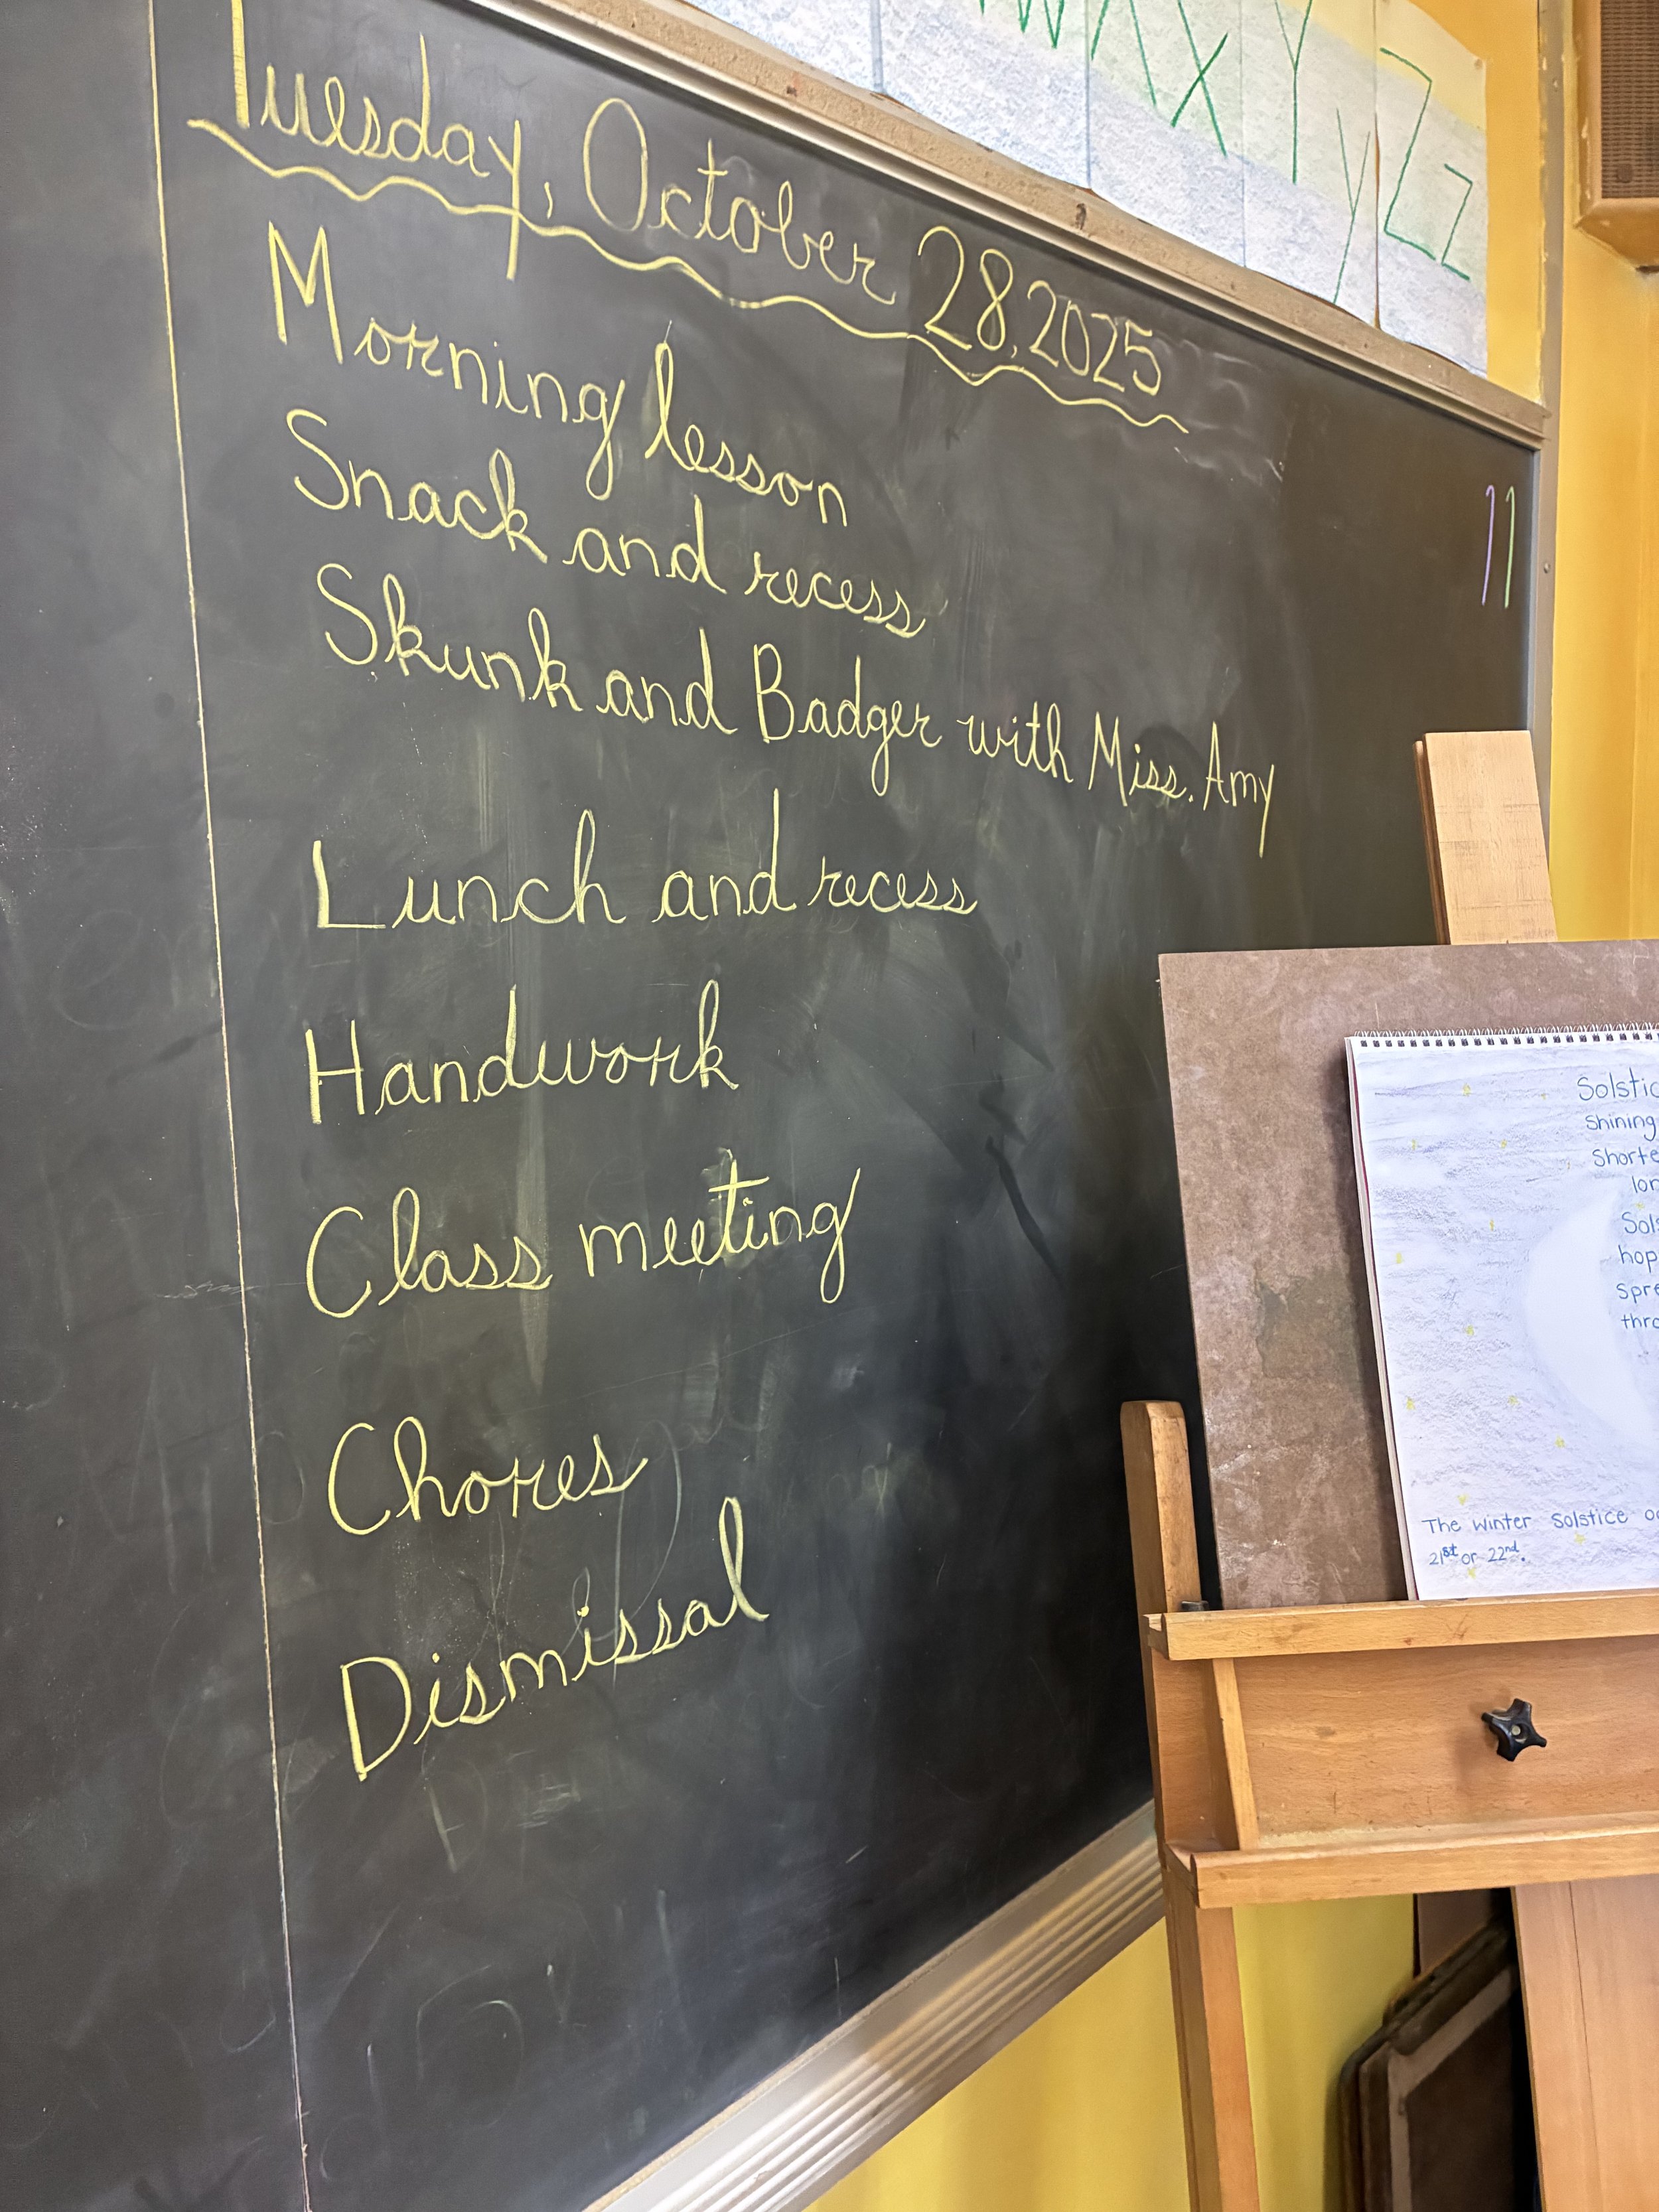 W X x Y y Z z
Tuesday, October 28, 2025
Morning lesson
Snack and recess
Skunk and Badger with Miss. Amy
Lunch and recess
Handwork
Class meeting
Chores
Dismissal
11
Shining
hop
The Winter Solstice
21st or 22nd.